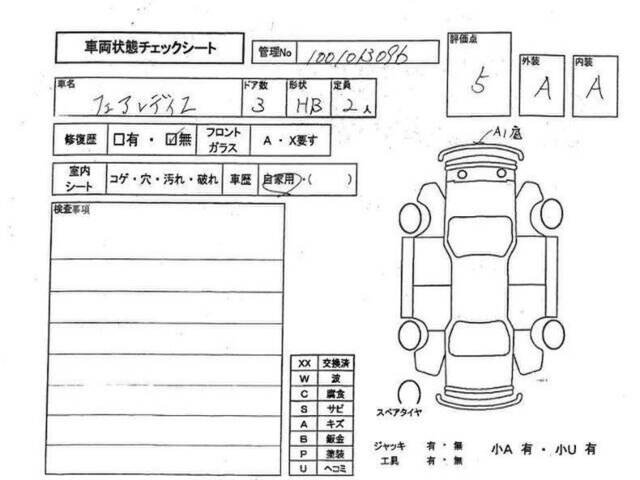 車両状態チェックシート
管理No 1001013096
評価点 5
外装 A
内装 A
車名 フェアレディZ
ドア数 3
形状 HB
定員 2人
修復歴 □有・☑無
フロントガラス A・X要す
室内シート コゲ・穴・汚れ・破れ
車歴 自家用・( )
検査事項
A1底
XX 交換済
W 波
C 腐食
S サビ
A キズ
B 鈑金
P 塗装
U ヘコミ
スペアタイヤ
ジャッキ 有・無
工具 有・無
小A 有・小U 有